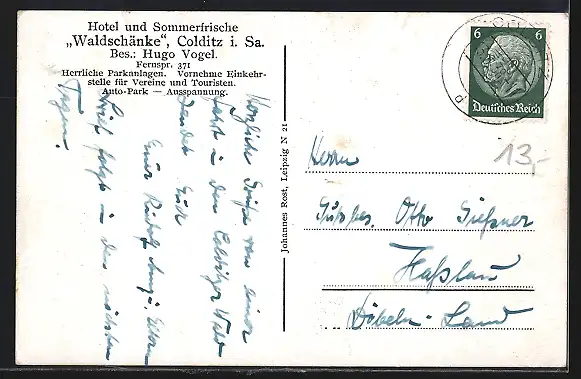 Hotel und Sommerfrische
„Waldschänke“, Colditz i. Sa.
Bes.: Hugo Vogel.
Fernspr. 371
Herrliche Parkanlagen. Vornehme Einkehr-
stelle für Vereine und Touristen.
Auto-Park — Ausspannung.
Herzliche Grüße von einer
Fahrt in den Colditzer Wald
sendet Euch
Euer Rudolf
Brief folgt in den nächsten
Tagen.
Johannes Rost, Leipzig N 21
6 6
Deutsches Reich
13,-
Herrn
Gutsbes. Otto Gießner
Haßlau
Döbeln-Land